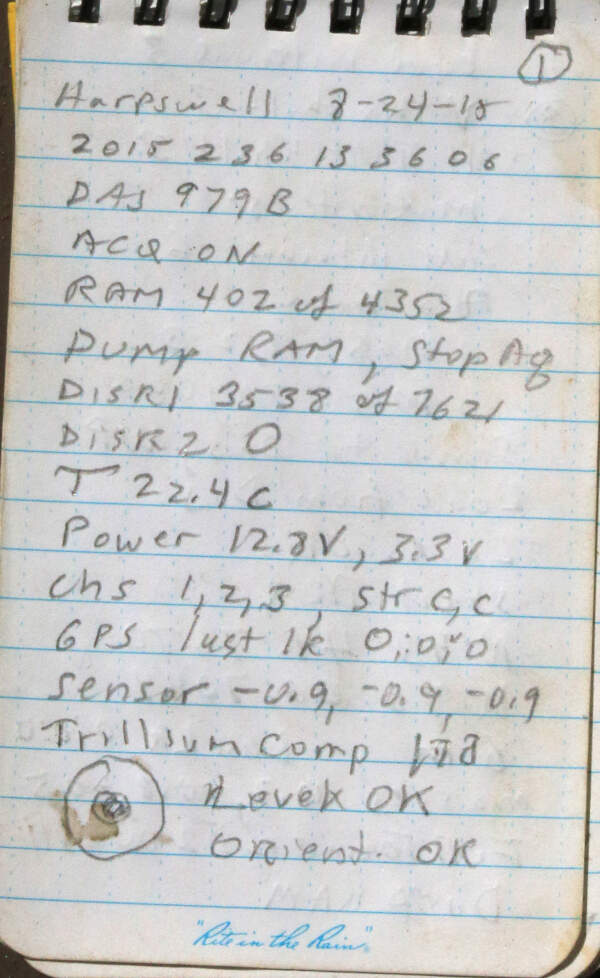 1
Harpswell 8-24-15
2015 236 13 36 06
DAS 979B
ACQ ON
RAM 402 of 4352
Dump RAM, Stop Aq
DISK1 3538 of 7621
DISK2 0
T 22.4 C
Power 12.8V, 3.3V
Chs 1,2,3, str C, C
GPS last lk 0;:0;:0
Sensor -0.9, -0.9, -0.9
Trillium Comp
Level OK
Orient. OK
"Rite in the Rain"